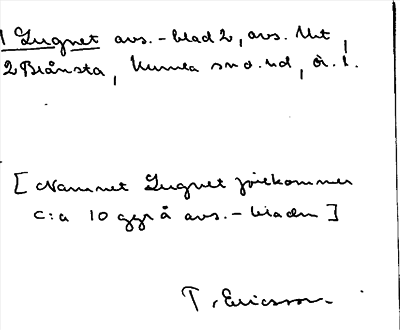 1 Lugnet avs.-blad 2, avs. till,
2 Brånsta, Kumla sn o. hd, ör. l.
[Namnet Lugnet förekommer
c:a 10 ggr å avs.-bladen]
T. Ericsson.